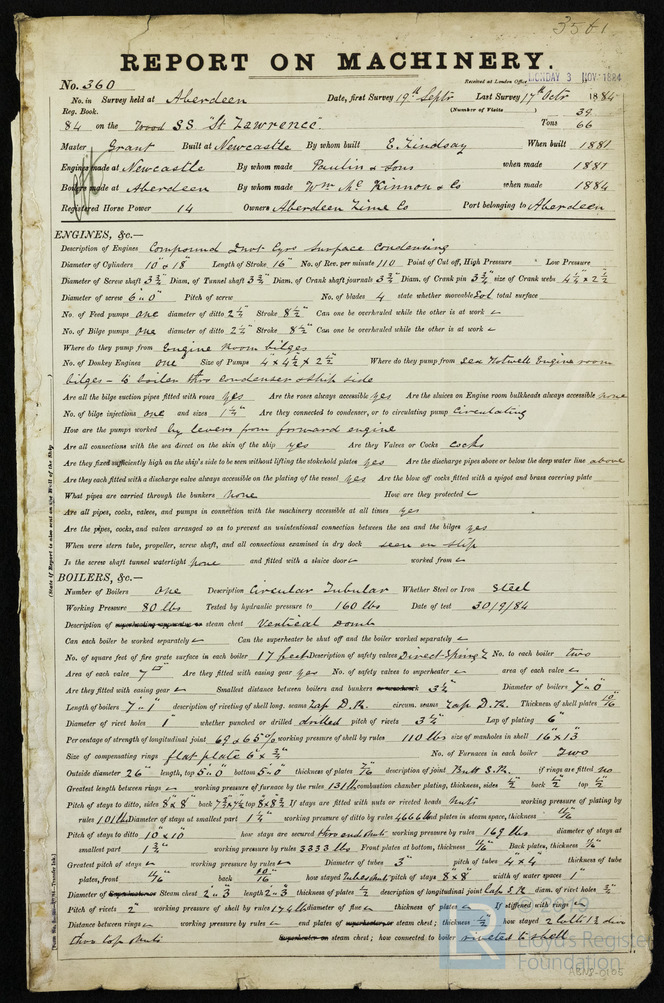 3561
REPORT ON MACHINERY.
No. 360
Received at London Office MONDAY 3 NOV 1884
No. in Survey held at Aberdeen Date, first Survey 19th Septr Last Survey 17th Octr 1884
Reg. Book. (Number of Visits) 39
84 on the Wood SS "St Lawrence" Tons 66
Master Grant Built at Newcastle By whom built E. Lindsay When built 1881
Engines made at Newcastle By whom made Paulin & Sons when made 1881
Boilers made at Aberdeen By whom made Wm Mc Kinnon & Co when made 1884
Registered Horse Power 14 Owners Aberdeen Lime Co Port belonging to Aberdeen
ENGINES, &c.—
Description of Engines Compound Invt Cyrs Surface Condensing
Diameter of Cylinders 10" & 18" Length of Stroke 16" No. of Rev. per minute 110 Point of Cut off, High Pressure Low Pressure
Diameter of Screw shaft 3¾" Diam. of Tunnel shaft 3¾" Diam. of Crank shaft journals 3¾" Diam. of Crank pin 3¾" size of Crank webs 4¼" x 2½"
Diameter of screw 6"0" Pitch of screw No. of blades 4 state whether moveable Sol total surface
No. of Feed pumps one diameter of ditto 2¼" Stroke 8½" Can one be overhauled while the other is at work
No. of Bilge pumps one diameter of ditto 2¼" Stroke 8½" Can one be overhauled while the other is at work
Where do they pump from Engine room bilges
No. of Donkey Engines one Size of Pumps 4" x 4½" x 2½" Where do they pump from sea Hotwell Engine room
bilges - to boiler thro condenser & ship side
Are all the bilge suction pipes fitted with roses yes Are the roses always accessible yes Are the sluices on Engine room bulkheads always accessible none
No. of bilge injections one and sizes 1¼" Are they connected to condenser, or to circulating pump Circulating
How are the pumps worked by levers from forward engine
Are all connections with the sea direct on the skin of the ship yes Are they Valves or Cocks cocks
Are they fixed sufficiently high on the ship's side to be seen without lifting the stokehold plates yes Are the discharge pipes above or below the deep water line above
Are they each fitted with a discharge valve always accessible on the plating of the vessel yes Are the blow off cocks fitted with a spigot and brass covering plate
What pipes are carried through the bunkers none How are they protected
Are all pipes, cocks, valves, and pumps in connection with the machinery accessible at all times yes
Are the pipes, cocks, and valves arranged so as to prevent an unintentional connection between the sea and the bilges yes
When were stern tube, propeller, screw shaft, and all connections examined in dry dock seen on slip
Is the screw shaft tunnel watertight none and fitted with a sluice door worked from
BOILERS, &c.—
Number of Boilers one Description Circular Tubular Whether Steel or Iron Steel
Working Pressure 80 lbs Tested by hydraulic pressure to 160 lbs Date of test 30/9/84
Description of superheating apparatus or steam chest Vertical Domb
Can each boiler be worked separately Can the superheater be shut off and the boiler worked separately
No. of square feet of fire grate surface in each boiler 17 feet Description of safety valves Direct Spring No. to each boiler two
Area of each valve 7" Are they fitted with easing gear yes No. of safety valves to superheater area of each valve
Are they fitted with easing gear Smallest distance between boilers and bunkers or woodwork 3½ Diameter of boilers 7"0"
Length of boilers 7"1" description of riveting of shell long. seams Lap D.R. circum. seams Lap D.R. Thickness of shell plates 10/16
Diameter of rivet holes 1" whether punched or drilled drilled pitch of rivets 3¼" Lap of plating 6"
Per centage of strength of longitudinal joint 69 & 65% working pressure of shell by rules 110 lbs size of manholes in shell 16" x 13"
Size of compensating rings flat plate 6" x ¾" No. of Furnaces in each boiler Two
Outside diameter 26" length, top 5"0" bottom 5"0" thickness of plates 7/16 description of joint Butt S.R. if rings are fitted no
Greatest length between rings working pressure of furnace by the rules 131 lb combustion chamber plating, thickness, sides ½" back ½" top ½"
Pitch of stays to ditto, sides 8" x 8" back 7¾ x 7¾ top 8" x 8½ If stays are fitted with nuts or riveted heads Nuts working pressure of plating by
rules 101 lb Diameter of stays at smallest part 1¼" working pressure of ditto by rules 4666 lb end plates in steam space, thickness 11/16"
Pitch of stays to ditto 10" x 10" how stays are secured thro end & nuts working pressure by rules 169 lbs diameter of stays at
smallest part 1¾" working pressure by rules 3333 lbs Front plates at bottom, thickness 11/16" Back plates, thickness
Greatest pitch of stays working pressure by rules Diameter of tubes 3" pitch of tubes 4 x 4 thickness of tube
plates, front 11/16 back 10/16 how stayed Tubes & nuts pitch of stays 8" x 8" width of water spaces 1"
Diameter of Superheater or Steam chest 2"3" length 2"3" thickness of plates ½ description of longitudinal joint Lap S.R. diam. of rivet holes ¾"
Pitch of rivets 2" working pressure of shell by rules 174 lb diameter of flue thickness of plates If stiffened with rings
Distance between rings working pressure by rules end plates of superheater, or steam chest; thickness ½" how stayed 2 bolts 1¾ diam
thro top & nuts Superheater or steam chest; how connected to boiler riveted to shell
(State if Report is also sent on the Hull of the Ship
© 2019
LR
Lloyd's Register
Foundation
ABN8-0105